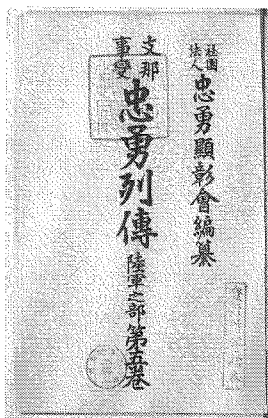 社團法人忠勇顯彰會編纂
支那事變忠勇列傳陸軍之部第五卷